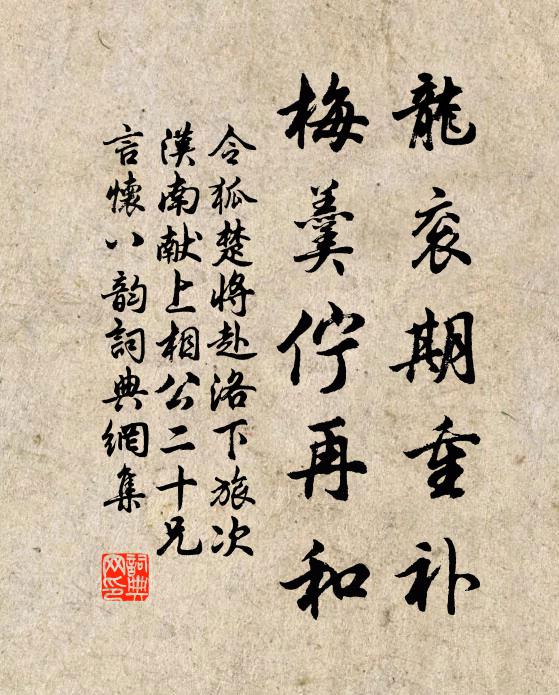 龍衮期重补
梅羹佇再和
令狐楚将赴洛下旅次
漢南献上相公二十兄
言懷八韵詞典網集
詞典
网印